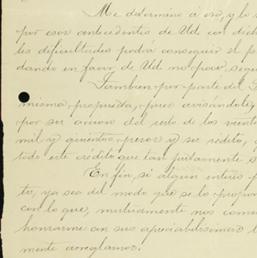 Me determino á eso, y lo
por esos antecedentes de Ud con dich
les dificultades podra conseguir el p
dando en favor de Ud no poco, segu
Tambien por parte del S
misma propuesta, pues avisandole,
por ser amon del resto de los veinte
mil y quinientos pesos y su rédito,
todo este crédito que tan justamente s
En fin, si algun interes p
to, ya sea del modo que se lo propu
con lo que, mutuamente nos conve
honrarme con sus apreciabilisimas
mente arreglarnos.